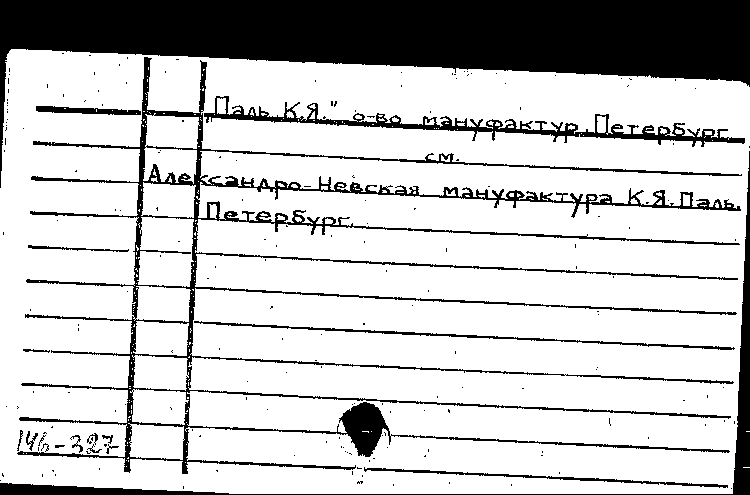 „Паль К.Я." о-во мануфактур, Петербург
см.
Александро-Невская мануфактура К.Я. Паль.
Петербург.
146-327